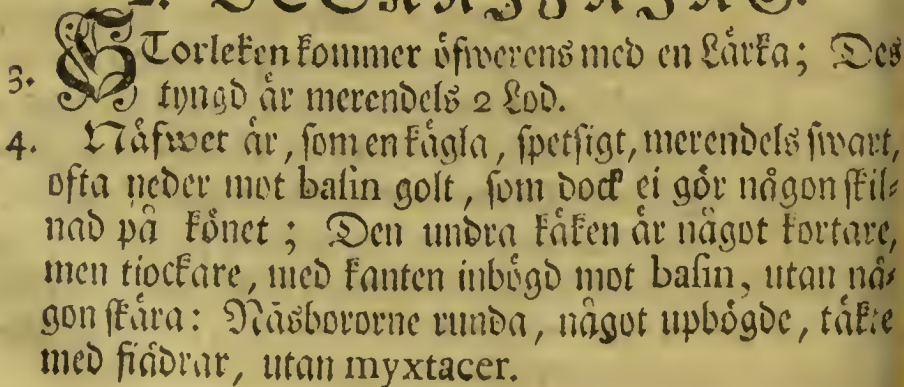 3. STorleken kommer öfwerens med en Lårka; Des
tyngd är merendels 2 Lod.
4. Näfwet är, som en kägla, spetsigt, merendels swart,
ofta neder mot basin golt, som dock ei gör någon skil-
nad på könet; Den undra käken är något kortare,
men tiockare, med kanten inbögd mot basin, utan nå-
gon skåra: Näsbororne runda, något upbögde, täkte
med fiädrar, utan myxtacer.